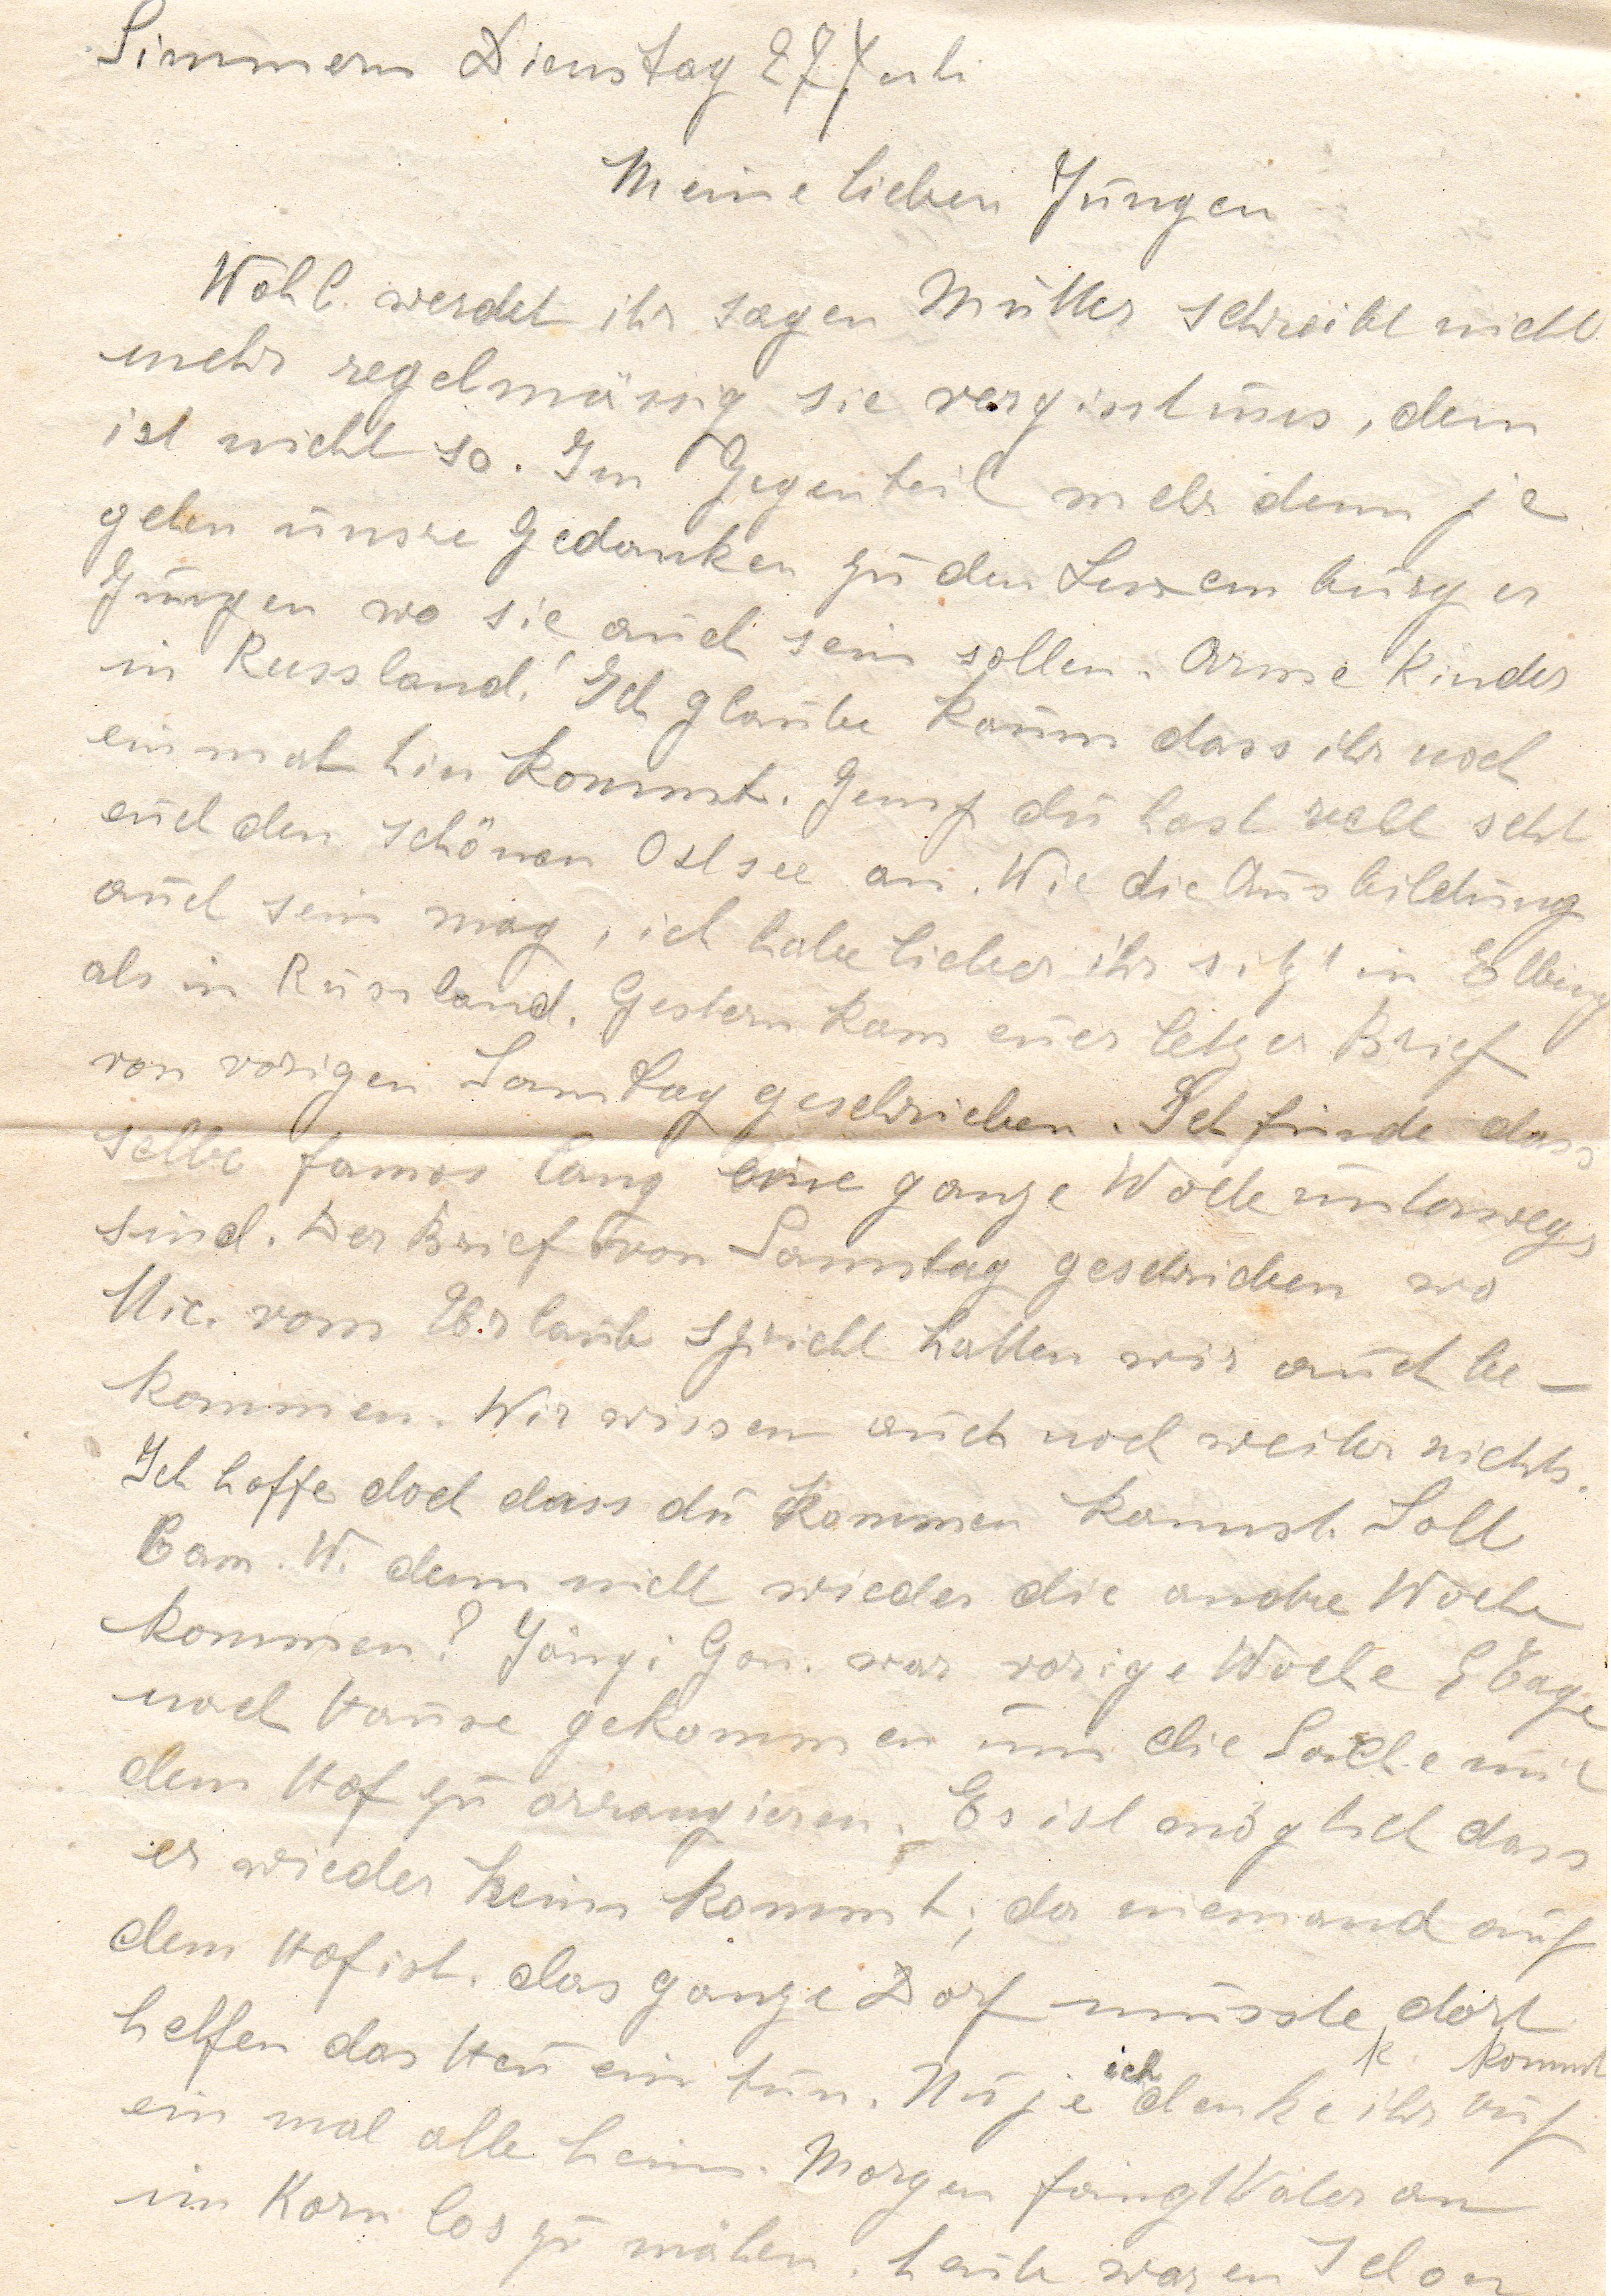 Simmern Dienstag 27 Juli
Meine lieben Jungen
Wohl werdet ihr sagen Mutter schreibt nicht
mehr regelmässig sie vergisst uns, dem
ist nicht so. Im Gegenteil mehr denn je
gehen unsre Gedanken zu den Luxemburger
Jungen wo sie auch sein sollen. Arme Kinder
in Russland! Ich glaube kaum dass ihr noch
einmal hin kommt. Jemp du hast recht seht
euch den schönen Ostsee an. Wie die Ausbildung
auch sein mag, ich habe lieber ihr sitzt in Elbing
als in Russland. Gestern kam euer letzer Brief
von vorigen Samtag geschrieben. Ich finde dass
selbe famos lang eine ganze Woche unterwegs
sind. Der Brief von Samstag geschrieben wo
Nic. vom Urlaub spricht hatten wir auch be-
kommen. Wir wissen auch noch weiter nichts.
Ich hoffe doch dass du kommen kannst. Soll
Cam. W. denn nicht wieder die andre Woche
kommen? Jängi Gon. war vorige Woche Tage
nach Hause gekommen um die Sache mit
dem Hof zu arrangieren. Es ist möglich dass
er wieder heim kommt, da niemand auf
dem Hof ist. das ganze Dorf musste dort
helfen das Heu ein tun. Nu je ich denke ihr k. kommt auf
ein mal alle heim. Morgen fängt Vater an
im Korn los zu mähen. heute waren schon